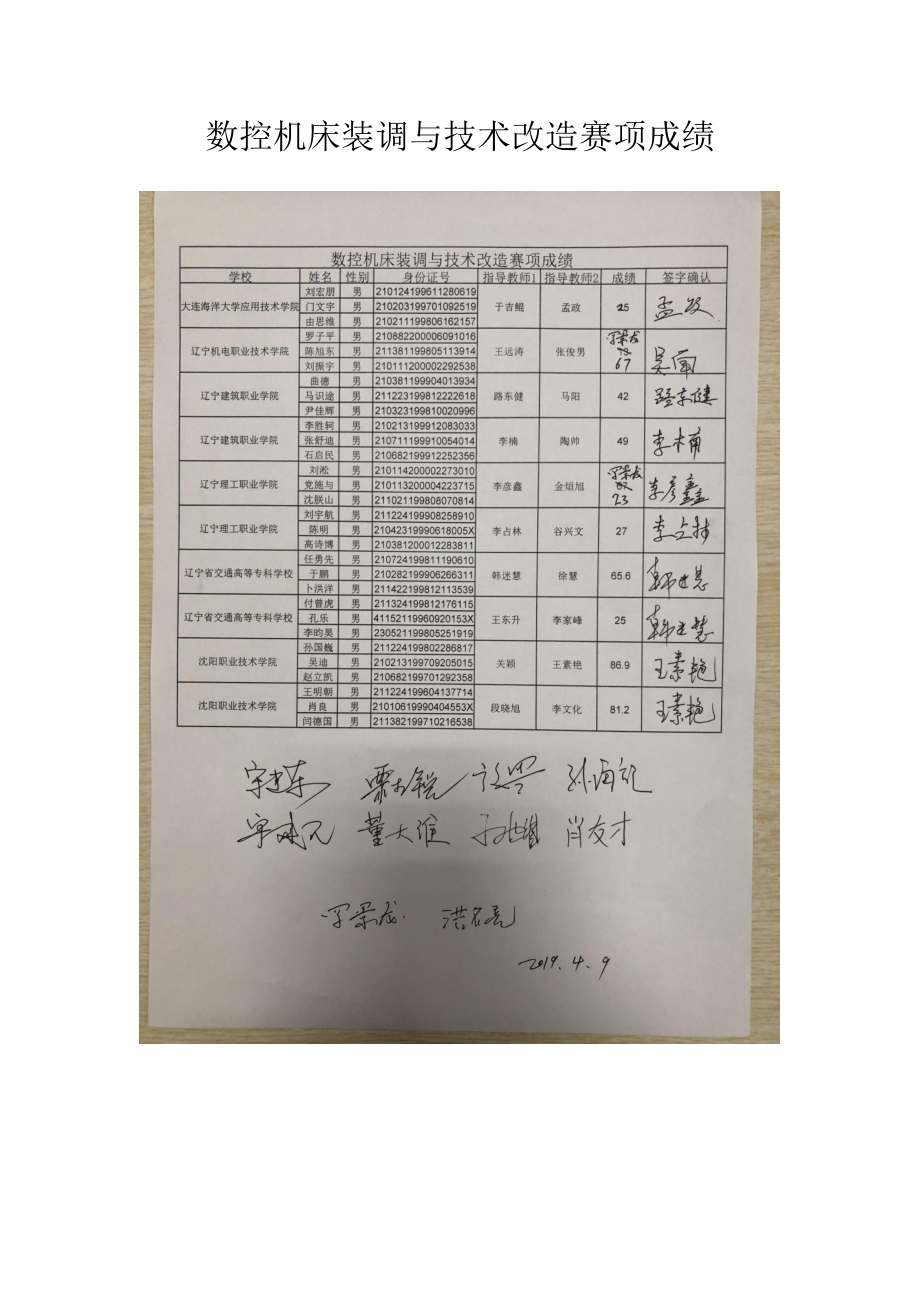 数控机床装调与技术改造赛项成绩
数控机床装调与技术改造赛项成绩
学校 姓名 性别 身份证号 指导教师1 指导教师2 成绩 签字确认
刘宏朋 男 210124199611280619
大连海洋大学应用技术学院 门文宇 男 210203199701092519 于吉鲲 孟政 25 孟政
由思维 男 210211199806162157
罗子平 男 210882200006091016
辽宁机电职业技术学院 陈旭东 男 211381199805113914 王远涛 张俊男 67
刘振宇 男 210111200002292538
曲德 男 210381199904013934
辽宁建筑职业学院 马识途 男 211223199812222618 路东健 马阳 42 路东健
尹佳辉 男 210323199810020996
李胜轲 男 210213199912083033
辽宁建筑职业学院 张舒迪 男 210711199910054014 李楠 陶帅 49 李楠
石启民 男 210682199912252356
刘淞 男 210114200002273010
辽宁理工职业学院 党施与 男 210113200004223715 李彦鑫 金烜旭 23 李彦鑫
沈朕山 男 211021199808070814
刘宇航 男 211224199908258910
辽宁理工职业学院 陈明 男 21042319990618005X 李占林 谷兴文 27 李占林
高诗博 男 210381200012283811
任勇先 男 210724199811190610
辽宁省交通高等专科学校 于鹏 男 210282199906266311 韩迷慧 徐慧 65.6 韩迷慧
卜洪洋 男 211422199812113539
付曾虎 男 211324199812176115
辽宁省交通高等专科学校 孔乐 男 41152119960920153X 王东升 李家峰 25 韩迷慧
李昀昊 男 230521199805251919
孙国巍 男 211224199802286817
沈阳职业技术学院 吴迪 男 210213199709205015 关颖 王素艳 86.9 王素艳
赵立凯 男 210682199701292358
王明朝 男 211224199604137714
沈阳职业技术学院 肖良 男 21010619990404553X 段晓旭 李文化 81.2 王素艳
闫德国 男 211382199710216538
董大维 肖友才
2019.4.9